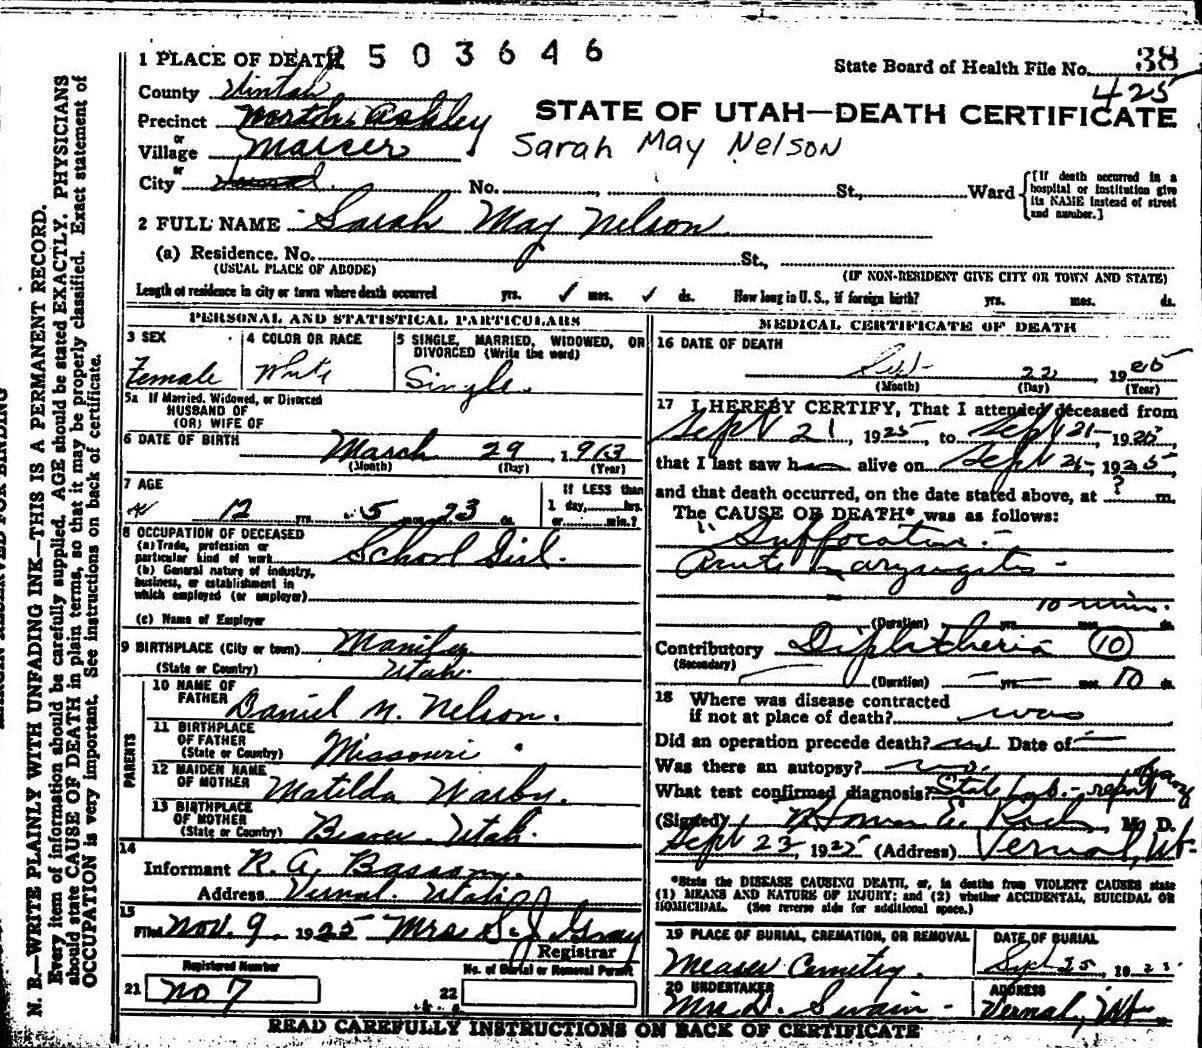 2503646
38
State Board of Health File No.
425
1 PLACE OF DEATH
County Uintah
STATE OF UTAH—DEATH CERTIFICATE
Precinct North Ashley
or
Village Maeser
Sarah May Nelson
or
City Vernal No. St., Ward
{If death occurred in a hospital or institution give its NAME instead of street and number.]
2 FULL NAME Sarah May Nelson
(a) Residence. No. St.,
(USUAL PLACE OF ABODE) (IF NON-RESIDENT GIVE CITY OR TOWN AND STATE)
Length of residence in city or town where death occurred yrs. ✓ mos. ✓ ds. How long in U. S., if foreign birth? yrs. mos. ds.
PERSONAL AND STATISTICAL PARTICULARS
3 SEX
Female
4 COLOR OR RACE
White
5 SINGLE, MARRIED, WIDOWED, OR
DIVORCED (Write the word)
Single.
5a If Married, Widowed, or Divorced
HUSBAND OF
(OR) WIFE OF
6 DATE OF BIRTH March 29 1913
(Month) (Day) (Year)
7 AGE
12 yrs. 5 mos. 23 ds.
If LESS than
1 day, hrs.
or min.?
8 OCCUPATION OF DECEASED
(a) Trade, profession or
particular kind of work School Girl.
(b) General nature of industry,
business, or establishment in
which employed (or employer)
(c) Name of Employer
9 BIRTHPLACE (City or town) Manila
(State or Country) Utah.
PARENTS
10 NAME OF
FATHER Daniel M. Nelson.
11 BIRTHPLACE
OF FATHER
(State or Country) Missouri
12 MAIDEN NAME
OF MOTHER Matilda Warby.
13 BIRTHPLACE
OF MOTHER
(State or Country) Beaver, Utah.
14
Informant R. A.
Address Vernal, Utah
15
Filed Nov. 9 1925 Mrs. S. J. Gray
Registrar
Registered Number
21 No 7
No. of Burial or Removal Permit
22
MEDICAL CERTIFICATE OF DEATH
16 DATE OF DEATH
Sept 22 1925
(Month) (Day) (Year)
17 I HEREBY CERTIFY, That I attended deceased from
Sept 21, 1925, to Sept 21, 1925,
that I last saw h alive on Sept 21, 1925
and that death occurred, on the date stated above, at ? m.
The CAUSE OF DEATH* was as follows:
Suffocation.
Acute Laryngitis
10 min.
(Duration) yrs. mos. ds.
Contributory Diphtheria 10
(Secondary)
(Duration) yrs. mos. 10 ds.
18 Where was disease contracted
if not at place of death? was
Did an operation precede death? Date of
Was there an autopsy? no.
What test confirmed diagnosis? State Lab. - report
(Signed) M. D.
Sept 23, 1925 (Address) Vernal, Ut.
*State the DISEASE CAUSING DEATH, or, in deaths from VIOLENT CAUSES state
(1) MEANS AND NATURE OF INJURY; and (2) whether ACCIDENTAL, SUICIDAL OR
HOMICIDAL. (See reverse side for additional space.)
19 PLACE OF BURIAL, CREMATION, OR REMOVAL
Measer Cemetry.
DATE OF BURIAL
Sept 25, 1925
20 UNDERTAKER
Mrs. D. Swain
ADDRESS
Vernal, Ut.
READ CAREFULLY INSTRUCTIONS ON BACK OF CERTIFICATE
MARGIN RESERVED FOR BINDING
N. B.—WRITE PLAINLY WITH UNFADING INK—THIS IS A PERMANENT RECORD.
Every item of information should be carefully supplied. AGE should be stated EXACTLY. PHYSICIANS
should state CAUSE OF DEATH in plain terms, so that it may be properly classified. Exact statement of
OCCUPATION is very important. See instructions on back of certificate.